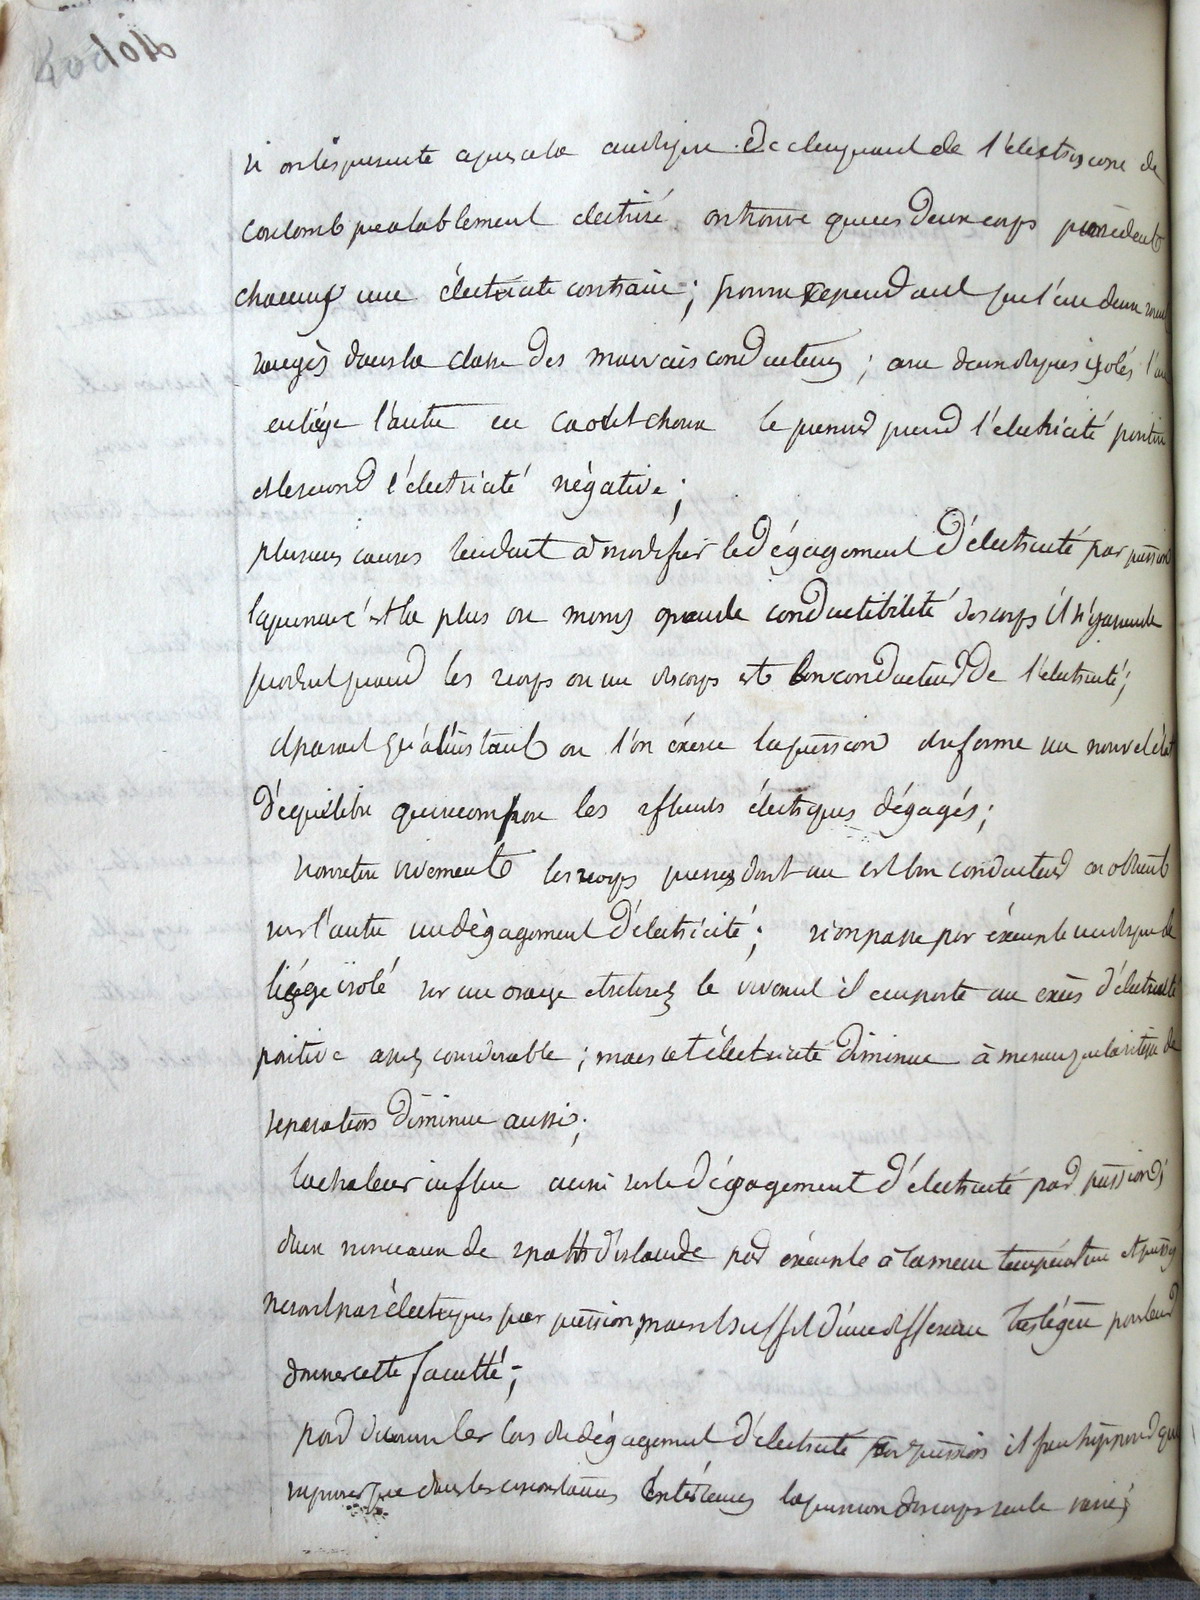 si on les presente apres cela au disque de clinquant de l'électroscope de
coulomb prealablement electrisé on trouve que ces deux corps possèdent
chacuns une électricité contraire; pourvu cependant que l'un deux soient
rangés dans la classe des mauvais conducteurs; avec deux disques isolés l'un
en liège l'autre en caoutchouc le premier prend l'électricité positive
et le second l'électricité négative;
plusieurs causes tendent à modifier le dégagement d'électricité par pression
la première c'est la plus ou moins grande conductibilité des corps il n'y a
produit quand les corps ou un des corps est bon conducteur de l'électricité;
il parait qu'à l'instant ou l'on éxerce la pression il se forme un nouvel état
d'équilibre qui recompose les effluves électriques dégagés;
si on retire vivement les corps pressés dont un est bon conducteur on obtient
sur l'autre un dégagement d'électricité; si on passe par éxemple un disque de
liége isolé sur une orange et retirez le vivement il emporte un excès d'électricité
positive assez considerable; mais cet électricité diminue à mesure que la vitesse de
separation diminue aussi;
la chaleur influe aussi sur le dégagement d'électricité par pression;
deux morceaux de spath d'islande par éxemple à la meme température et pressés
ne sont pas électriques par pression, mais il suffit d'une difference tres légère pour leur
donner cette faculté;
pour les lois du dégagement d'électricité par pression il faut
supposer que dans les circonstances intérieures la pression des corps seule varie;